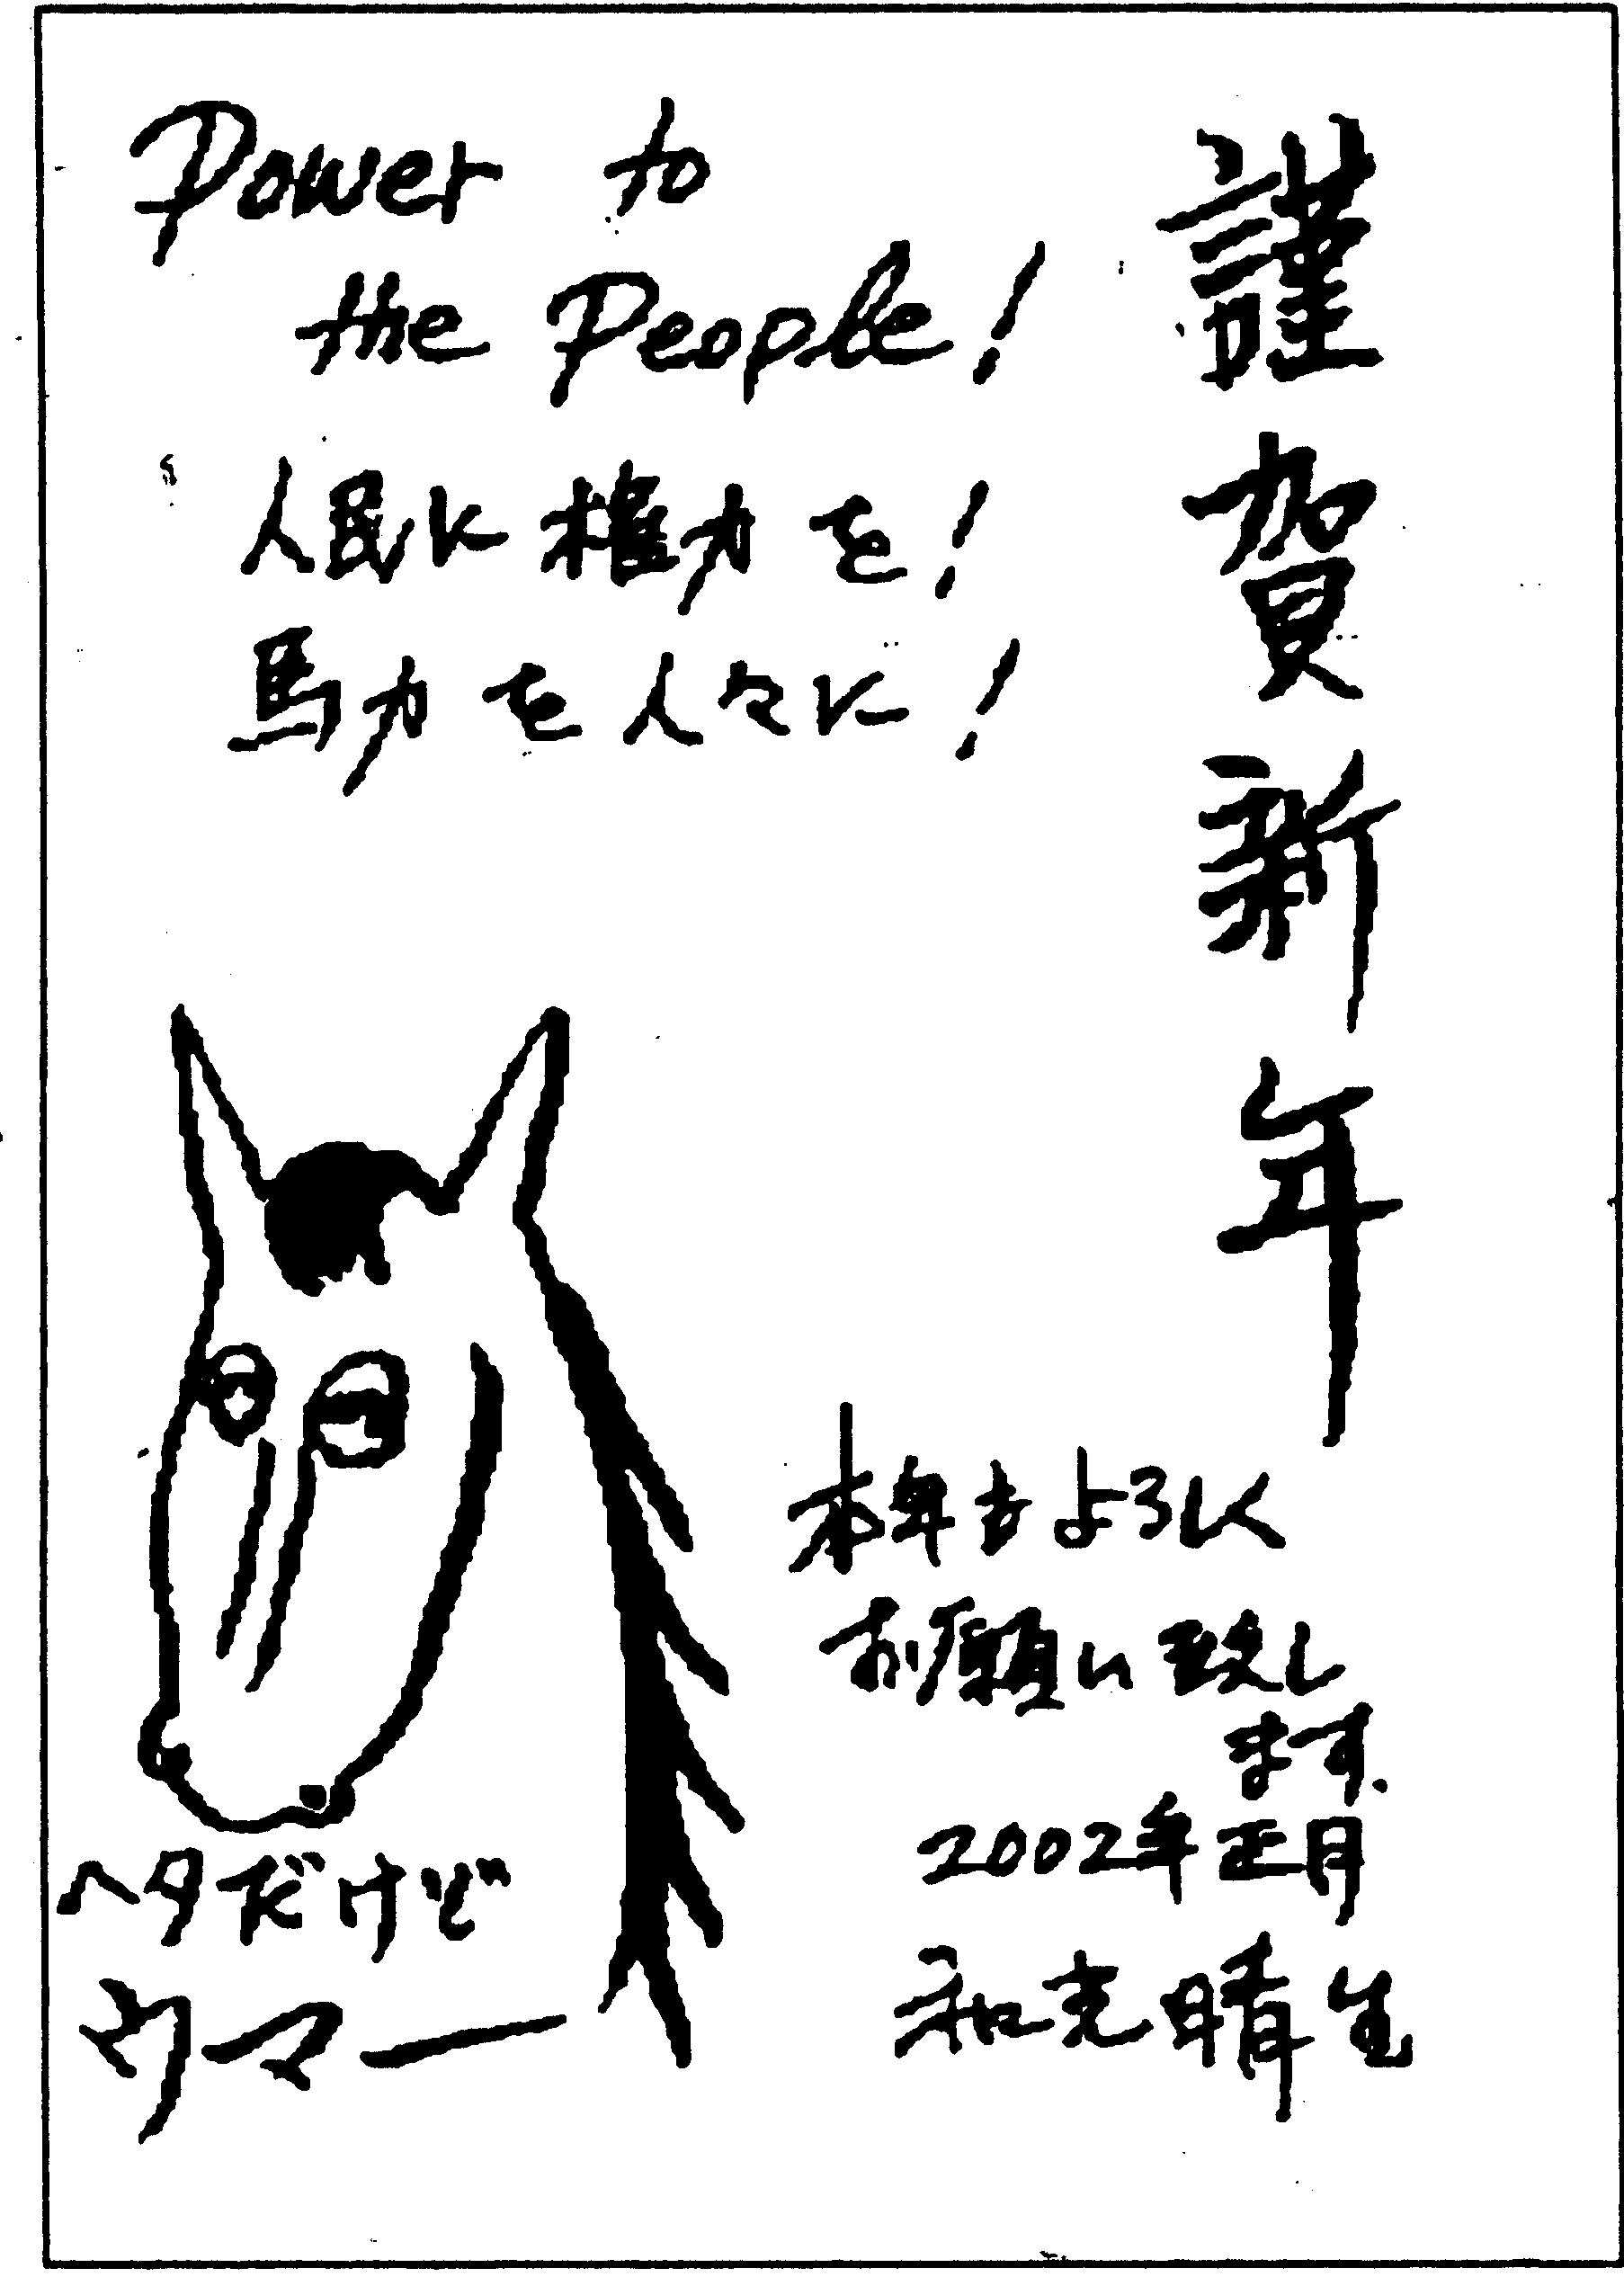 謹賀新年
Power to
the People!
人民に権力を!
馬力を人々に!
本年もよろしく
お願い致し
ます.
2002年正月
和光晴生
ヘタだけど
ウマー